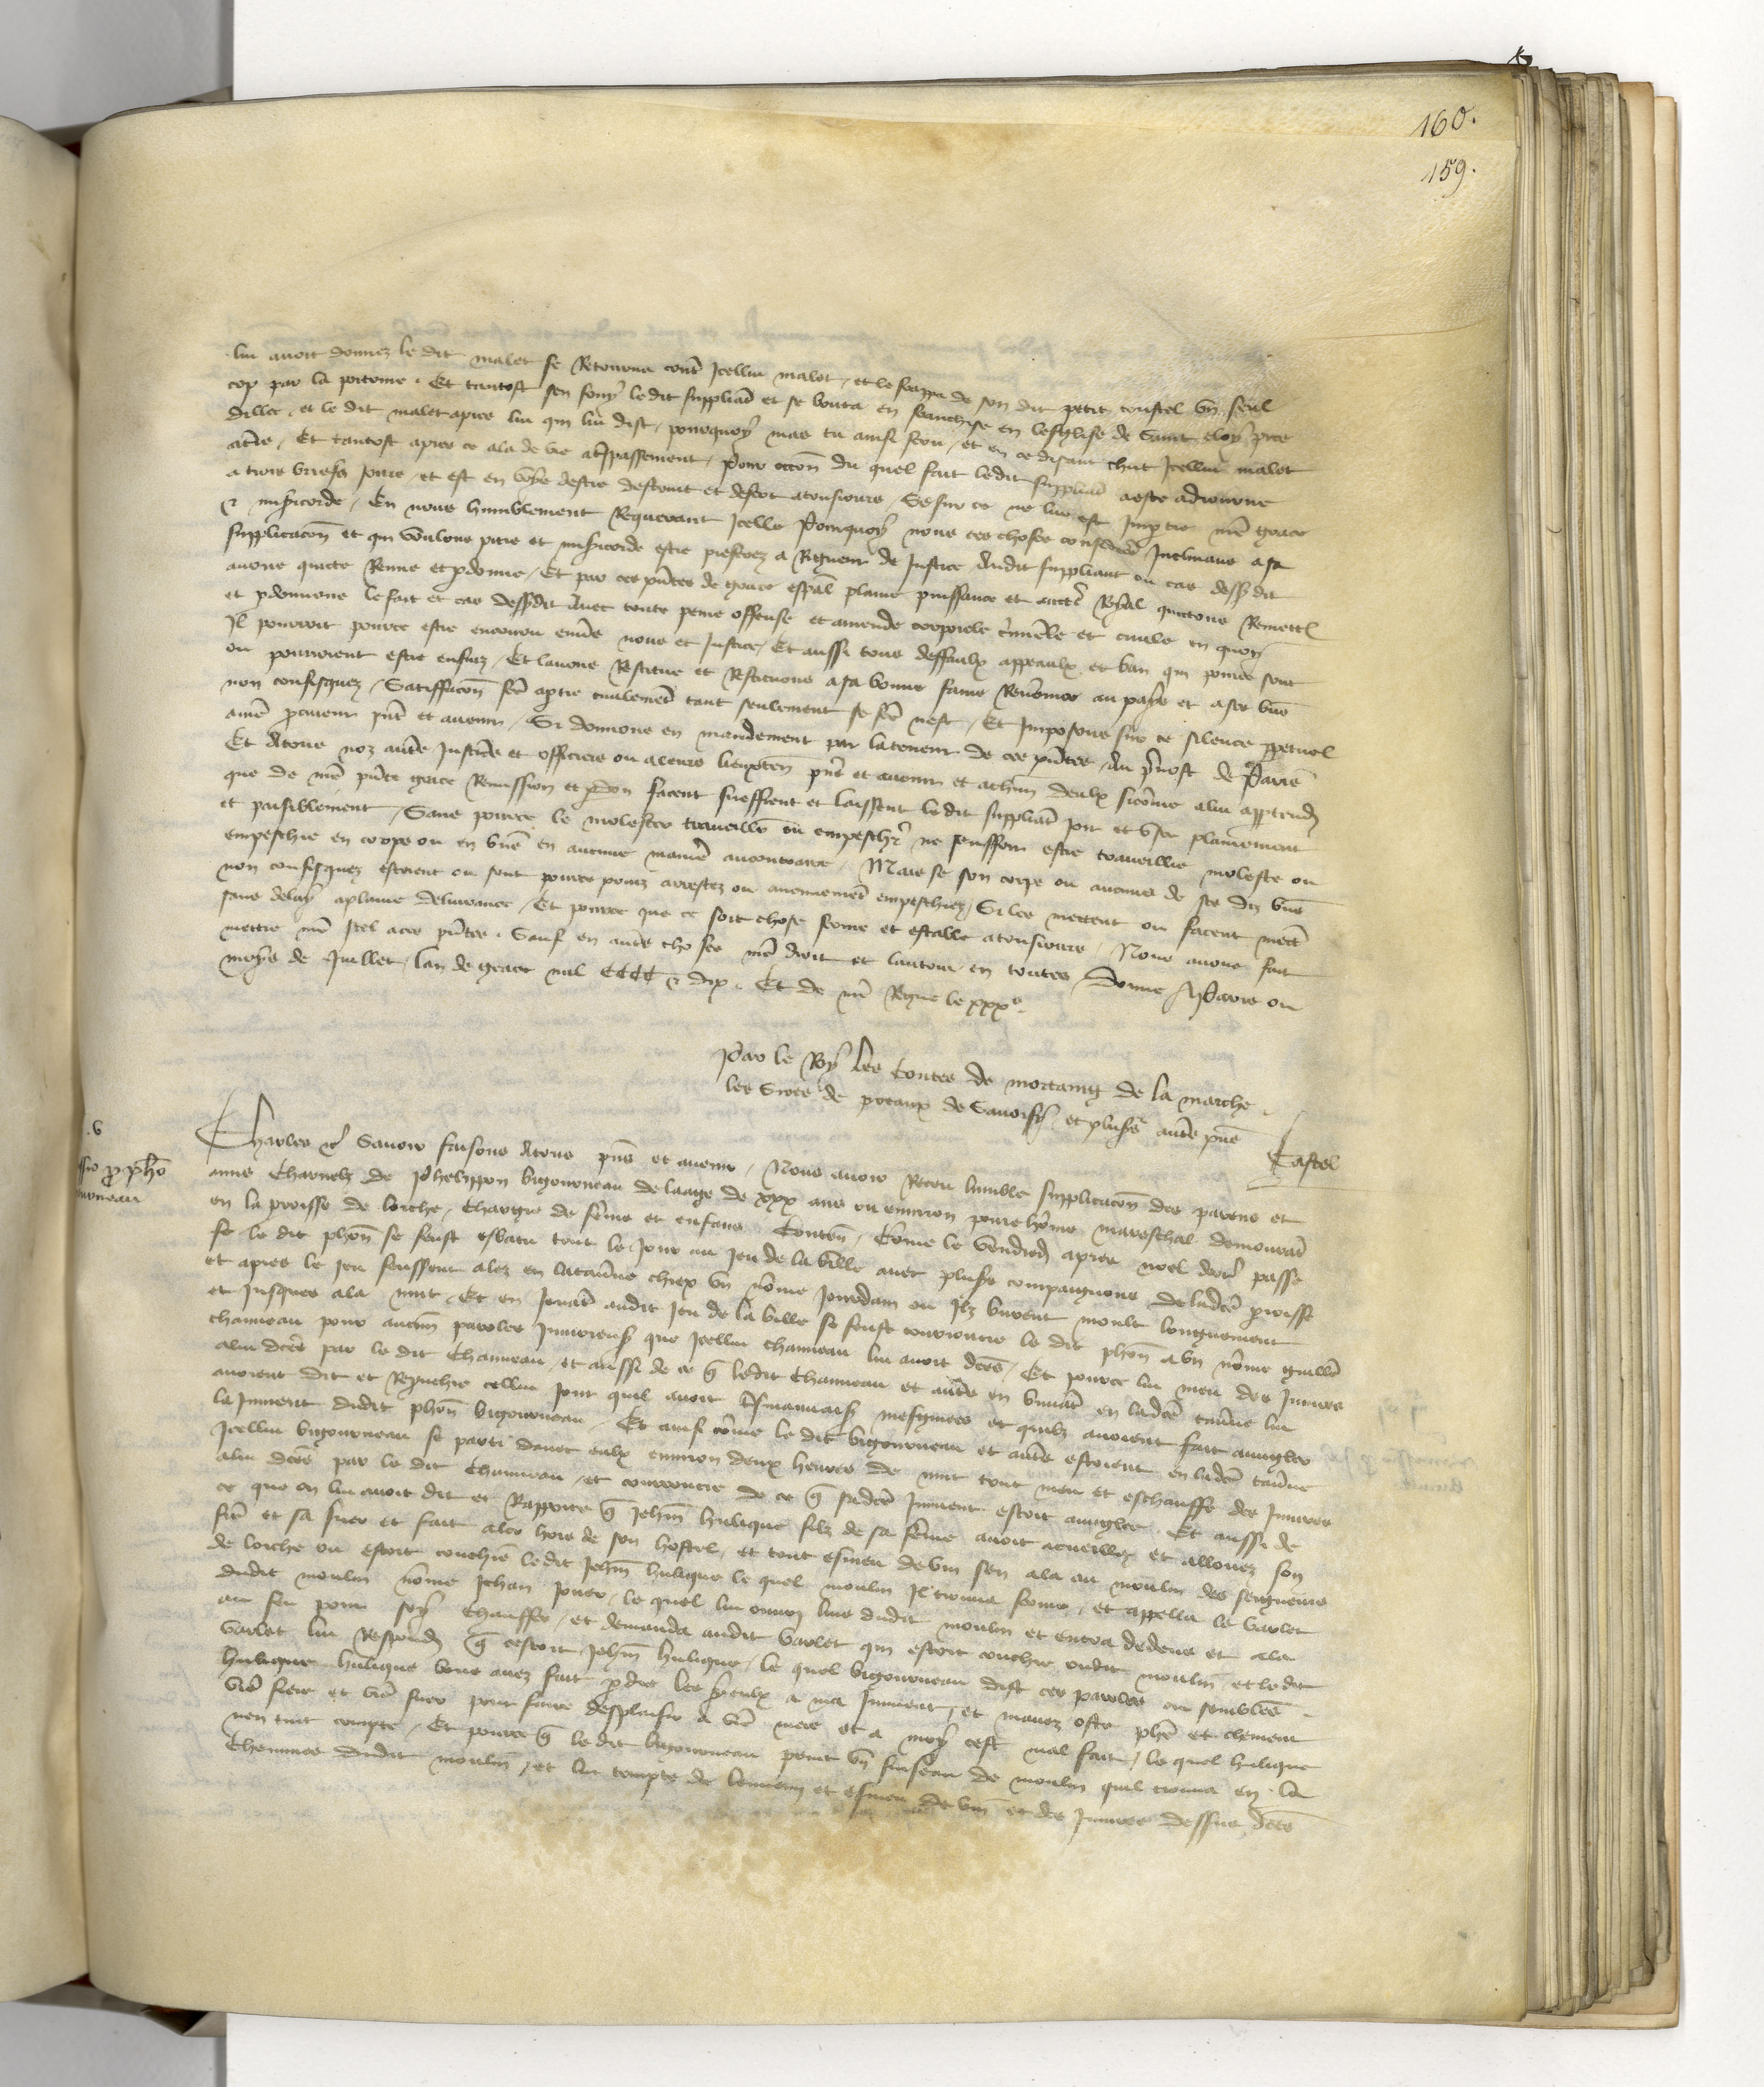 160.
159.
lui avoit donnez le dit malet se Retourna contr Icellui malet / et le frappa de son dit petit coustel un seul
cop par la poitrine . Et tantost sen fouy ledit suppliant et se bouta en franchise en lesglise de Saint eloy pres
dillec . et le dit malet apres lui qui lui dist / pourquoy mas tu ainsi feru / et en ce disant chut Icellui malet
a terre . Et tantost apres ce ala de vie a trespassement / Pour occon du quel fait ledit suppliant a este adiourne
a trois briefs jours / et est en voye destre destruit et desert a tousiours / Se sur ce ne lui est Impartie nre grace
et misericorde / En nous humblement Requerant Icelle Pourquoy nous ces choses considerees Inclinans a sa
supplicacon et qui voulons pitie et misericorde estre preferez a Rigueur de Justice Audit suppliant ou cas dessusdit
avons quicte Remis et pdonne / Et par ces pntes de grace espal plaine puissance et auctte Royal quictons Remettons
et pdonnons le fait et cas dessusdit Avec toute peine offense et amende corporele criminele et civile en quoy
Il pourroit pource estre encouru envers nous et Justice / Et aussi tous deffaulx appeaulx et ban qui pource sont
ou pourroient estre ensuiz / Et lavons Restitue et Restituons a sa bonne fame Renommee au pays et a ses biens
non confisquez / Satisffacon fce a ptie civilement tant seulement se fce nest / Et Imposons sur ce silence ppetuel
a nre procureur pnt et avenir / Si donnons en mandement par la teneur de ces pntes Au prevost de Paris
Et Atous noz autres Justiciers et officiers ou a leurs lieuxten pns et avenir et a chun deulx sicome a lui apptendra
que de nre pnte grace Remission et pdon facent sueffrent et laissent ledit suppliant joir et user plainement
et paisiblement / Sans pource le molester travaillier ou empeschier ne seuffrent estre travaillie moleste ou
empeschie en corps ou en biens en aucune maniere au contraire / Mais se son corps ou aucuns de ses diz biens
non confisquez estoient ou sont pource prins arrestez ou aucunement empeschiez / Si les mettent ou facent mettre
sans delay a plaine delivrance / Et pource que ce soit chose ferme et estable a tousiours / Nous avons fait
mettre nre seel a ces pntes . Sauf en autres choses nre droit et lautrui en toutes Donne A Paris ou
moys de Juillet / lan de grace mil CCCC et dix . Et de nre Regne le xxxe .
Par le Roy Les Contes de mortaing de la marche .
les Sires de preaux de Savoisy et plusrs autres pns
Castel
Charles etc Savoir faisons Atous pns et avenir / Nous avoir Receu lumble supplicacon des parens et
amis Charnelz de Phelippon bigourneau de laage de xxx ans ou environ povre home mareschal demourant
en la proisse de loiche / Chargie de feme et enfans Contenant / Come le vendredi apres noel derr passe
se le dit phon se feust esbatu tout le jour au jeu de la bille avec plusrs compaignons de ladce proisse
et apres le jeu feussent alez en la taverne chiex un nome jourdam ou Ilz burent moult longuement
et jusques a la nuit / Et en jouant audit jeu de la bille se feust courroucie le dit phon a un nome guille
chauveau pour aucunes paroles Injurieuses que Icellui chauveau lui avoit dces / Et pource lui meu des Injures
a lui dces par le dit Chauveau / et aussi de ce que ledit Chauveau et autres en buvant en ladce taverne lui
avoient dit et Reprouchie cellui jour quil avoit mauvaises mesgnees et quilz avoient fait aveugler
la jument dudit phon bigourneau . Et ainsi come le dit bigourneau et autres estoient en ladce taverne
Icellui bigourneau se parti davec eulx environ deux heures de nuit tout meu et eschauffe des Injures
a lui dces par le dit Chauveau / et courroucie de ce que sadce jument estoit aveugle . Et aussi de
ce que on lui avoit dit et Rapporte que Jehan hulique filz de sa feme avoit acueilliz et allouez son
frere et sa suer et fait aler hors de son hostel / et tout esmeu de vin sen ala au moulin des seigneurs
de loiche ou estoit couchie ledit Jehan hulique le quel moulin Il trouva ferme / et appella le varlet
dudit moulin nome Jehan / le quel lui ouvry luis dudit moulin et entra dedens et ala
au feu pour soy chauffer / et demanda audit varlet qui estoit couchie oudit moulin / et ledit
varlet lui Respondi que cestoit Jehan hulique / le quel bigourneau dist ces paroles ou semblables
hulique hulique vous avez fait pdre les yeulx a ma jument / et mavez oste phe et clement
vre frere et vre suer pour faire desplaisir a vre mere et a moy cest mal fait / le quel hulique
nen tint compte / Et pource que le dit bigourneau print un fuiseau de moulin quil trouva en la
cheminee dudit moulin / et esmeu de vin et des Injures dessus dces